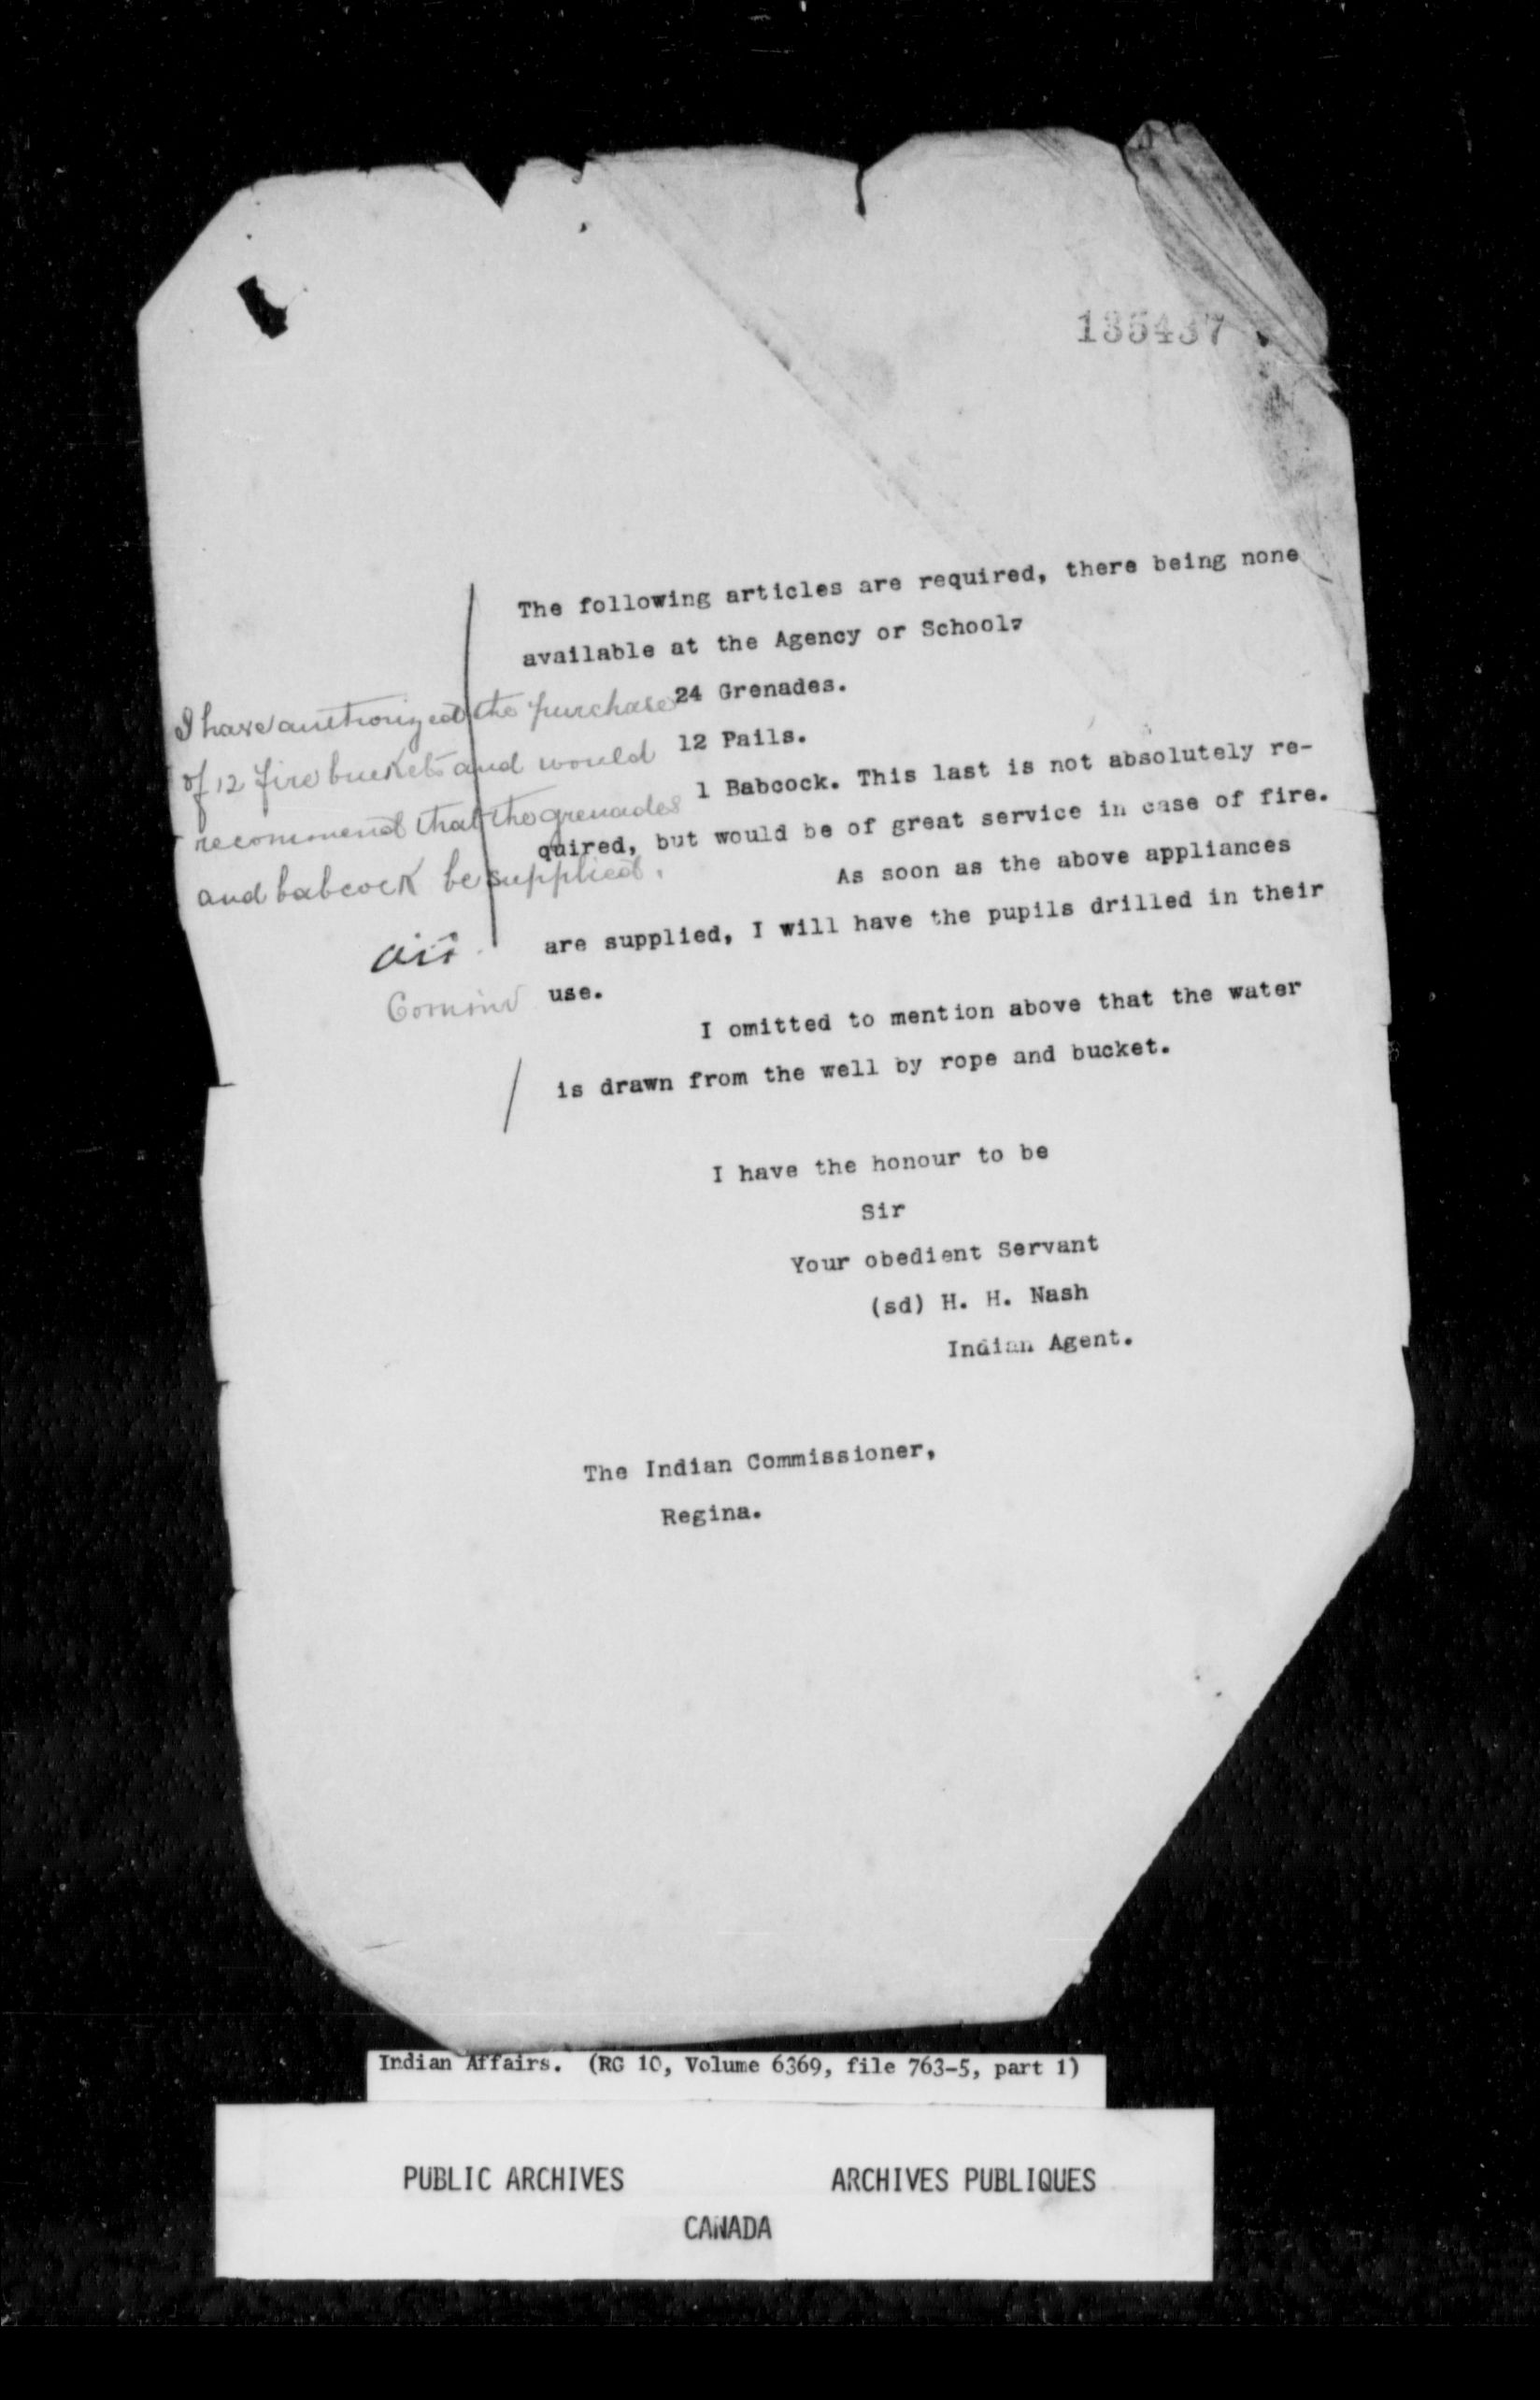 135437
The following articles are required, there being none
available at the Agency or School
24 Grenades.
12 Pails.
1 Babcock. This last is not absolutely re-
quired, but would be of great service in case of fire.
As soon as the above appliances
are supplied, I will have the pupils drilled in their
use.
I omitted to mention above that the water
is drawn from the well by rope and bucket.
I have the honour to be
Sir
Your obedient Servant
(sd) H. H. Nash
Indian Agent.
The Indian Commissioner,
Regina.
I have authorized the purchase
of 12 fire buckets and would
recommend that the grenades
and babcock be supplied.
Indian Affairs. (RG 10, Volume 6369, file 763-5, part 1)
PUBLIC ARCHIVES ARCHIVES PUBLIQUES
CANADA